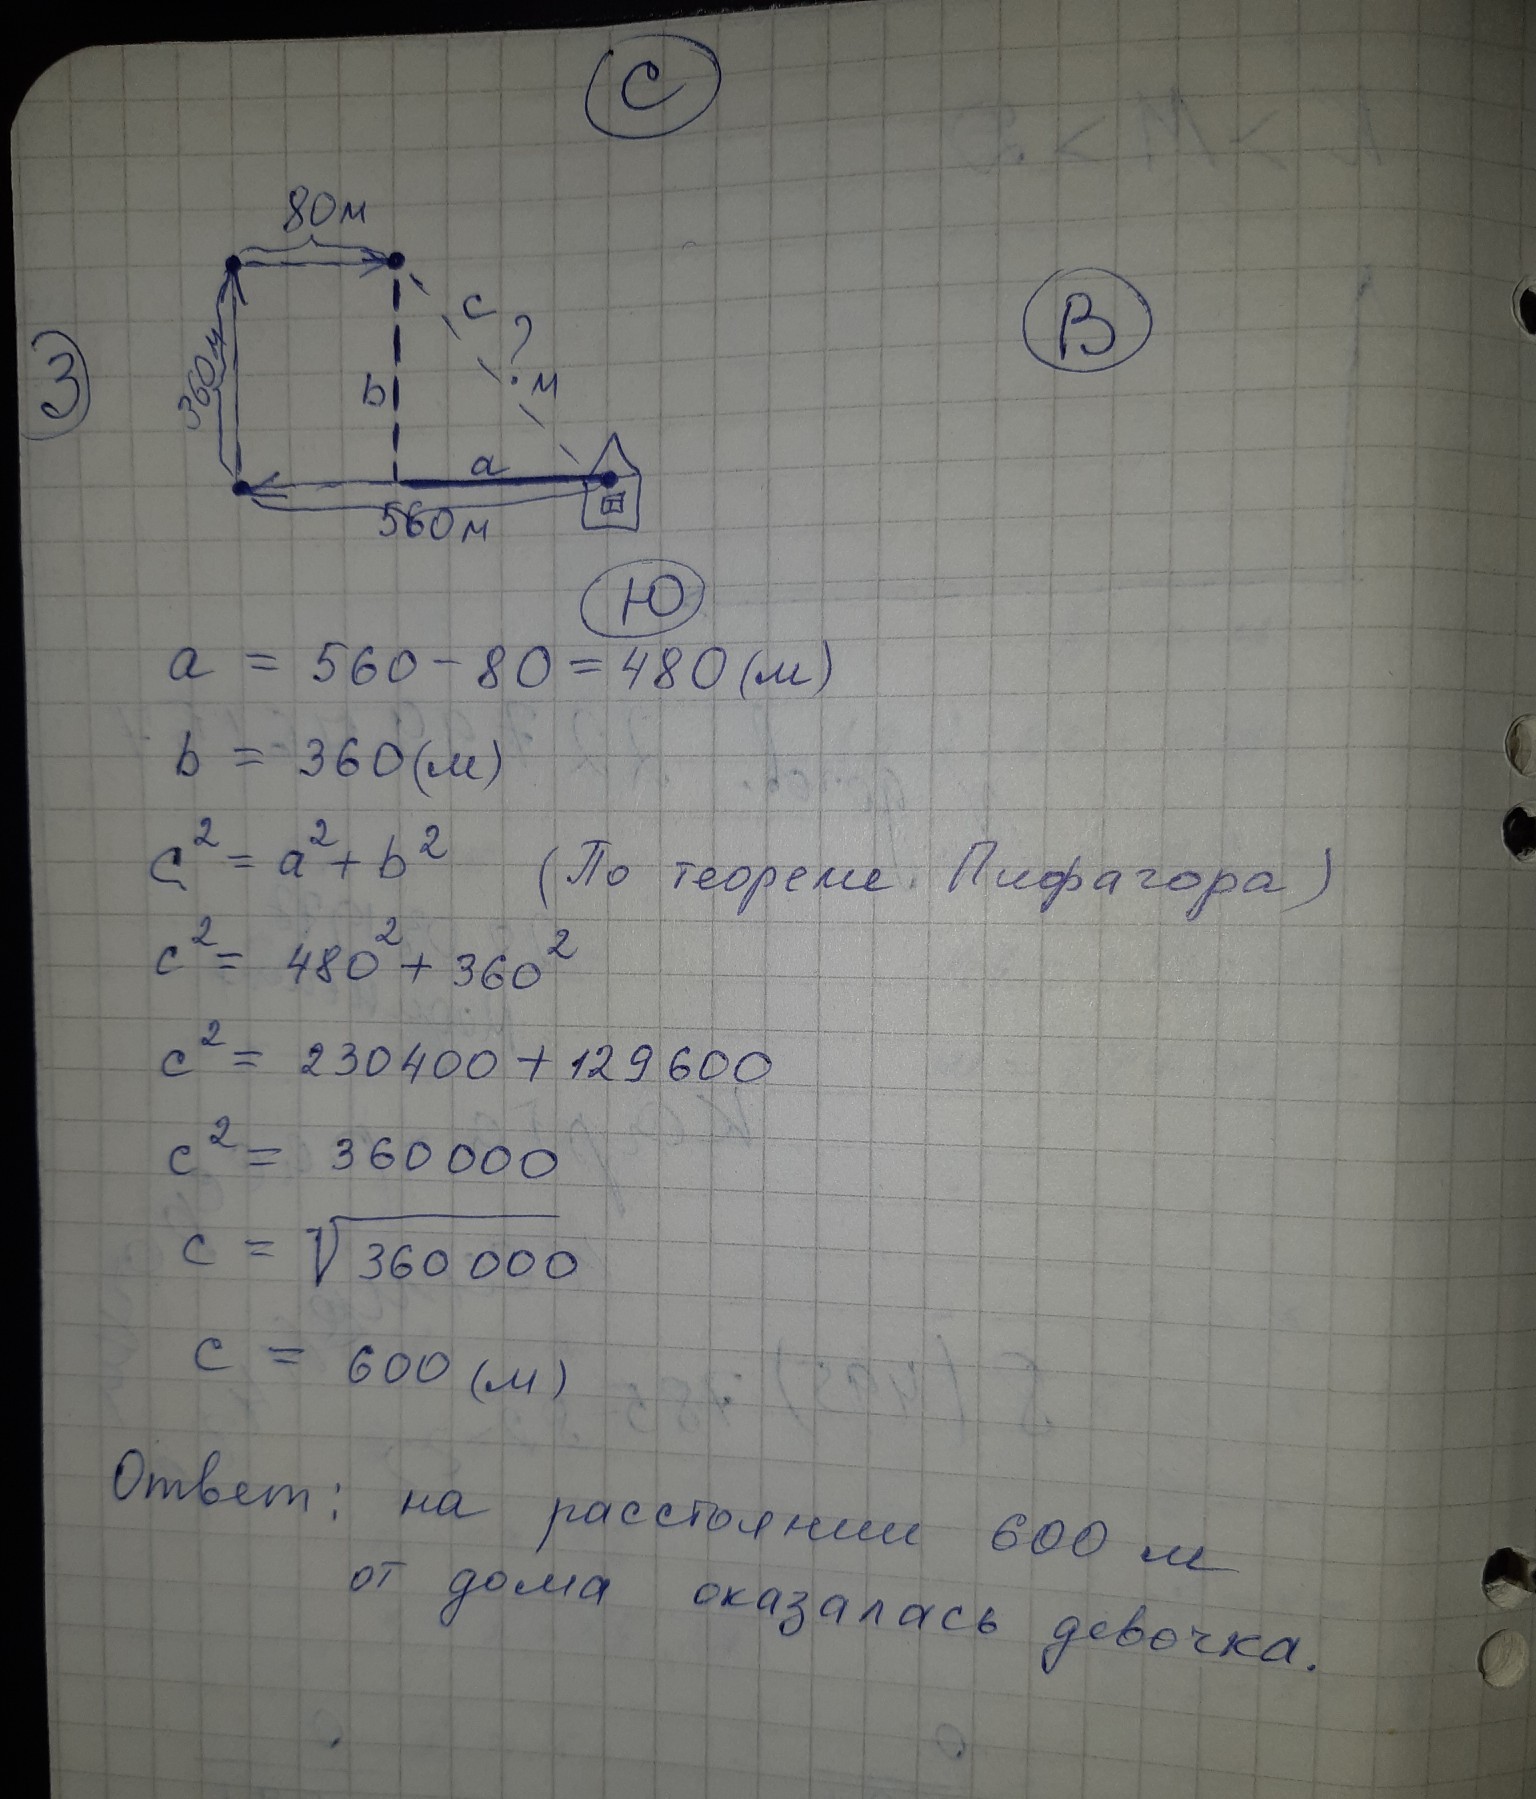 С
80м
с
?
З
360м
b
м
В
a
560м
Ю
a = 560 - 80 = 480 (м)
b = 360 (м)
c² = a² + b² (По теореме Пифагора)
c² = 480² + 360²
c² = 230400 + 129600
c² = 360000
c = √360000
c = 600 (м)
Ответ: на расстоянии 600 м
от дома оказалась девочка.